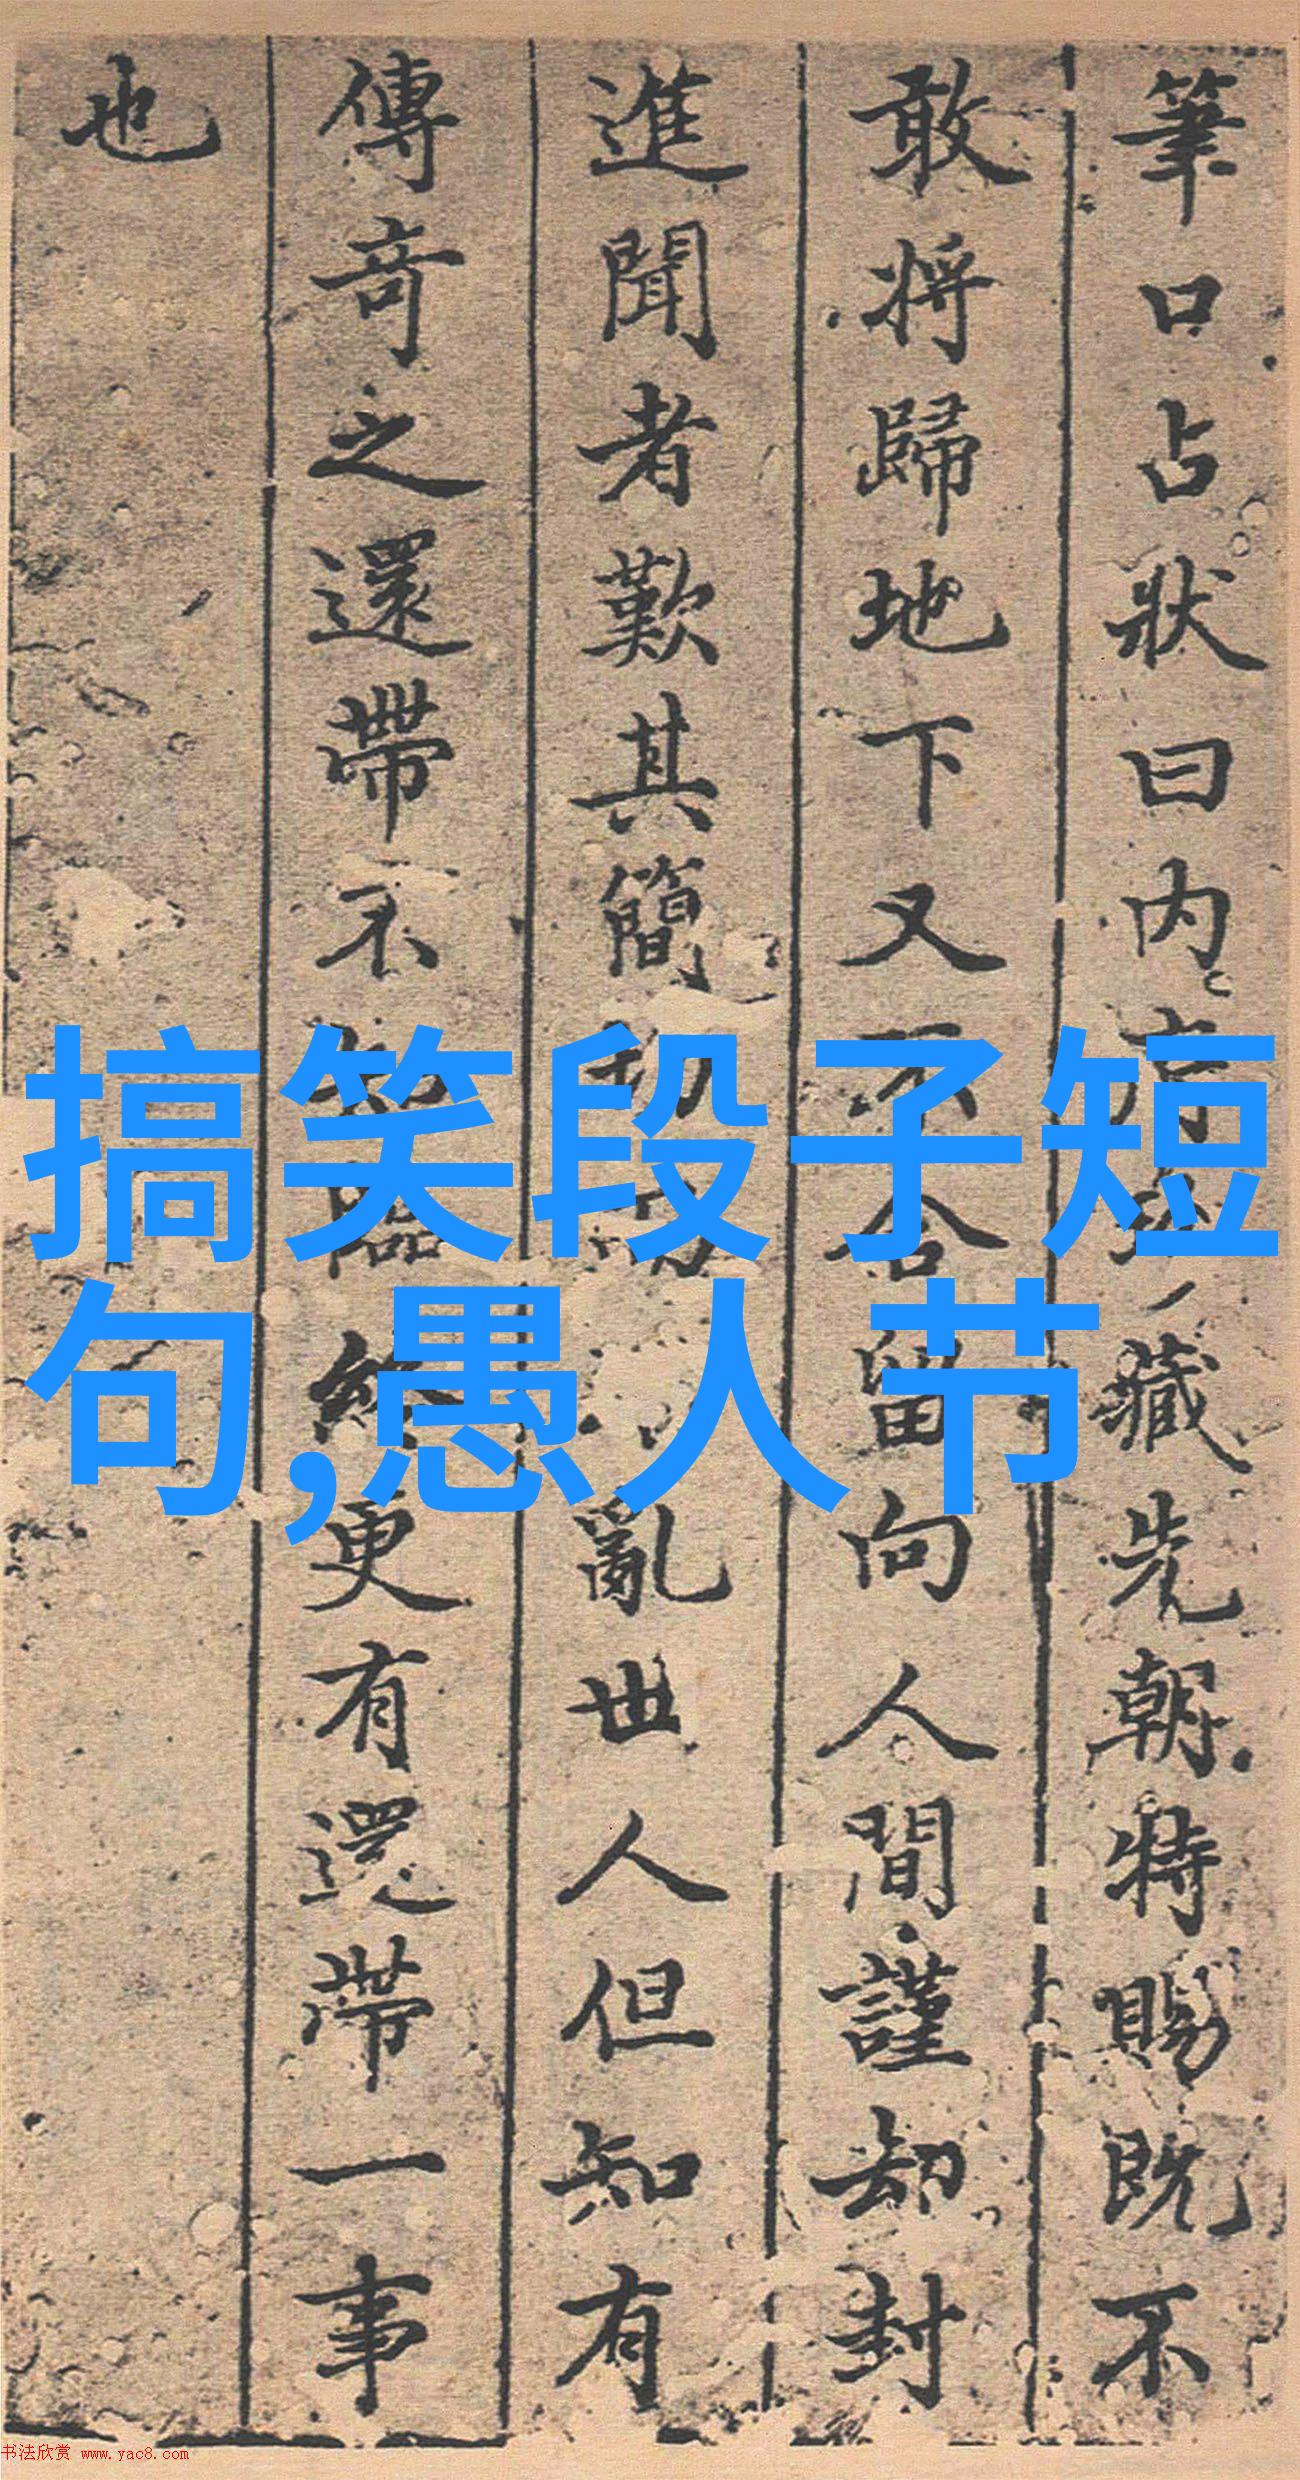 筆口占狀曰内
藏先朝特賜既不
敢將歸地下又不合留向人間謹却封
進聞者歎其簡
亂世人但知有
傳奇之還帶不
更有還帶一事
也
搞笑段子短
句,愚人节
书法欣赏 www.yac8.com